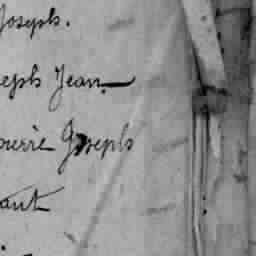 Joseph.
eph Jean
ierre Joseph
ant